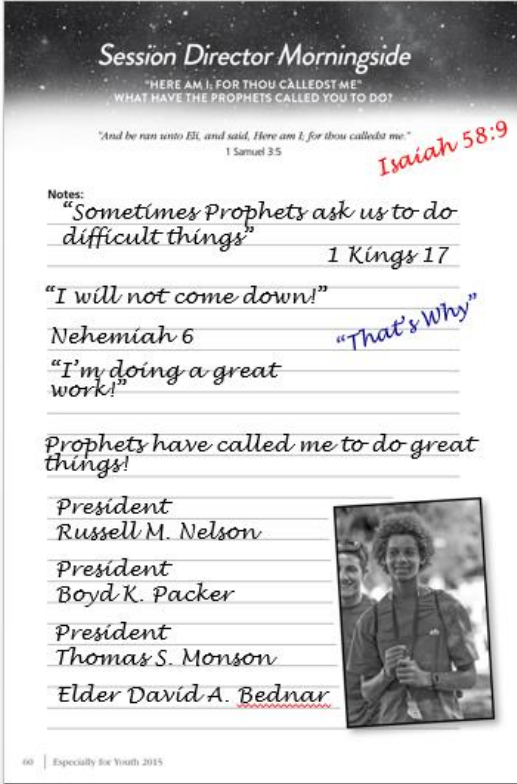 Session Director Morningside
"HERE AM I; FOR THOU CALLEDST ME"
WHAT HAVE THE PROPHETS CALLED YOU TO DO?
"And he ran unto Eli, and said, Here am I; for thou calledst me."
1 Samuel 3:5
Isaiah 58:9
Notes:
“Sometimes Prophets ask us to do
difficult things”
1 Kings 17
“I will not come down!”
Nehemiah 6
“That’s Why”
“I’m doing a great
work!”
Prophets have called me to do great
things!
President
Russell M. Nelson
President
Boyd K. Packer
President
Thomas S. Monson
Elder David A. Bednar
60 | Especially for Youth 2015